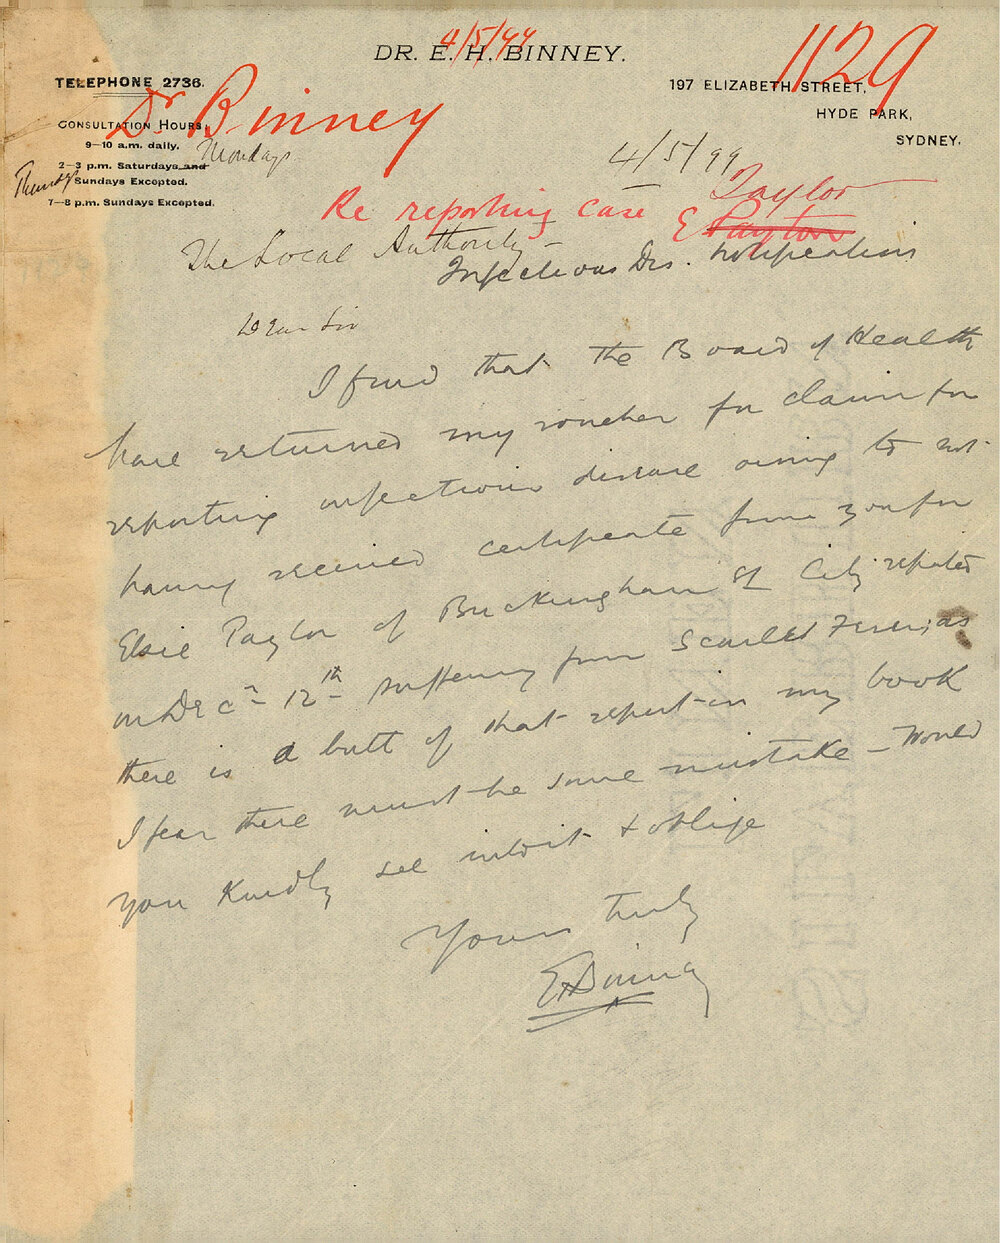 4/5/99
DR. E. H. BINNEY.
1129
TELEPHONE 2736.
197 ELIZABETH STREET,
HYDE PARK,
SYDNEY.
Dr Binney
CONSULTATION HOURS:
9–10 a.m. daily.
Mondays
2–3 p.m. Saturdays and
Thursdays Sundays Excepted.
7–8 p.m. Sundays Excepted.
4/5/99
Taylor
Re reporting case E Payton
The Local Authority –
Infectious Dis. Notifications
Dear Sir
I find that the Board of Health
have returned my voucher for claim for
reporting infectious disease owing to not
having received certificate from you for
Elsie Taylor of Buckingham St City reported
on Dec 12th suffering from Scarlet Fever, as
there is a butt of that report in my book
I fear there must be some mistake – Would
you Kindly see into it & oblige
Yours truly
EHBinney